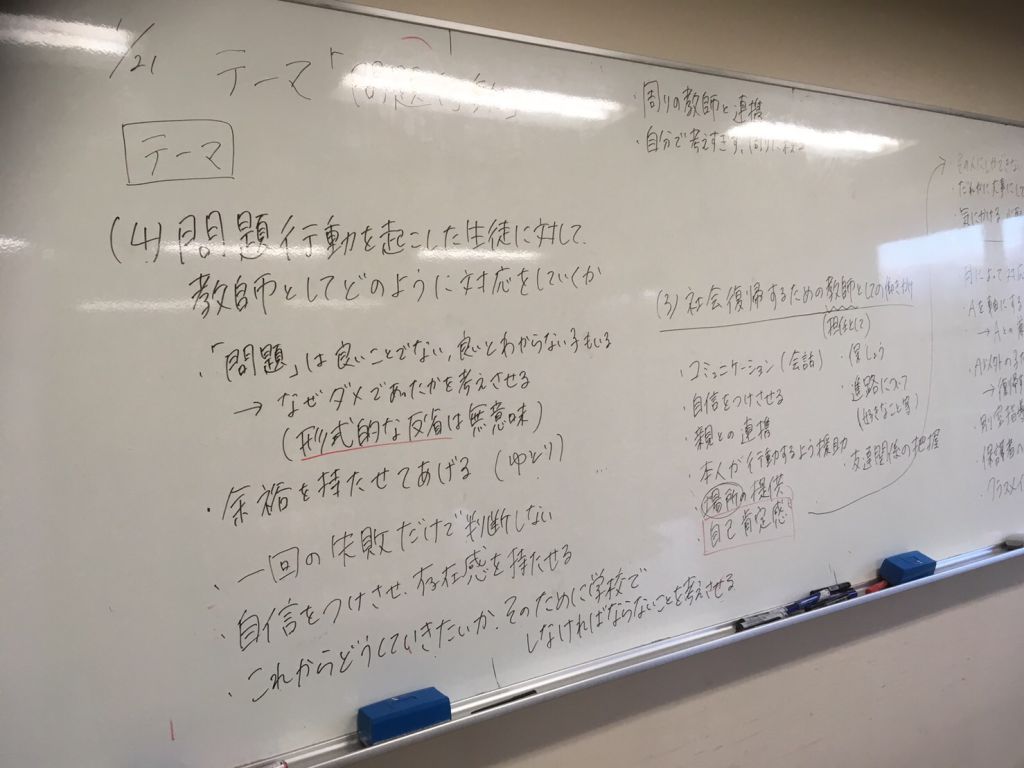 1/21
テーマ「問題行動」
テーマ
(4) 問題行動を起こした生徒に対して、
教師としてどのように対応をしていくか
・「問題」は良いことでない、良いとわからない子もいる
→ なぜダメであったかを考えさせる
(形式的な反省は無意味)
・余裕を持たせてあげる (ゆとり)
・一回の失敗だけで判断しない
・自信をつけさせ、存在感を持たせる
・これからどうしていきたいか、そのために学校で
しなければならないことを考えさせる
・周りの教師と連携
・自分で考えすぎず、周りに
(3) 社会復帰するための教師としての働きかけ
(担任として)
・コミュニケーション (会話)
・自信をつけさせる
・親との連携
・本人が行動するよう援助
・場所の提供
・自己肯定感
・保しょう
・進路について
(好きなこと等)
・友達関係の把握
・気にかける
・Aを軸にする
・A以外の子
・保護者の
・クラスメイ